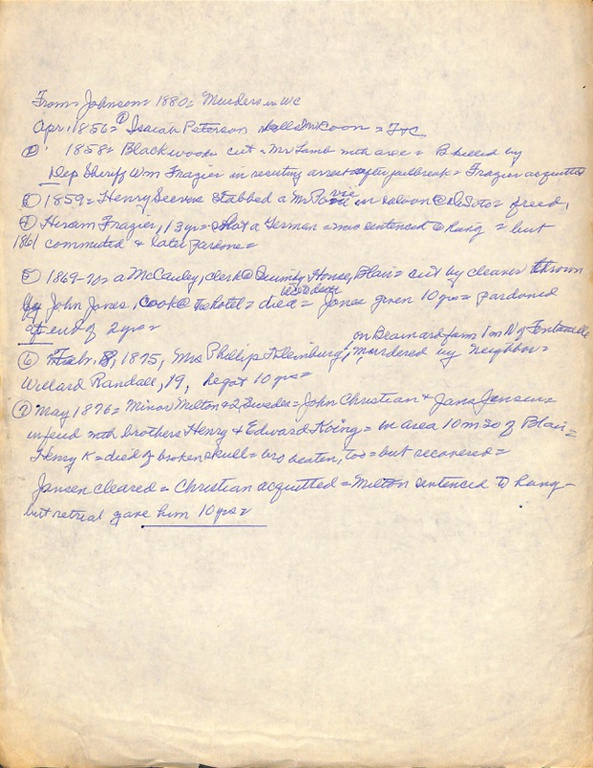 From Johnson 1880= Murders in WC
Apr. 1856= ① Isaiah Peterson kills Mr Coon = FtC
② 1858= Blackwood cut = Mr Lamb with axe = B killed by
Dep Sheriff Wm Frazier in resisting arrest after jailbreak = Frazier acquitted
③ 1859= Henry Seevers stabbed a Mr in saloon @ DeSoto= freed,
④ Hiram Frazier, 13 yr= shot a German = was sentenced to hang = but
1861 commuted & later pardone=
⑤ 1869-70= a McCauley, clerk @ House, Blair= cut by cleaver thrown
by John Jones, cook @ the hotel= died= Jones given 10 yrs= pardoned
at end of 2 yrs=
on Brainard farm 1 m N of Fontanelle
⑥ Feb. 8, 1875, Mrs Phillip, murdered by neighbor=
Willard Randall, 19, he got 10 yrs=
⑦ May 1876= Minor Milton=2 Swedes= John Christian & Jans Jensen=
in feud with brothers Henry & Edward King= in area 10 m so of Blair=
Henry K= died of broken skull= bro beaten, too= but recovered=
Jansen cleared = Christian acquitted = Milton sentenced to hang-
but retrial gave him 10 yrs=